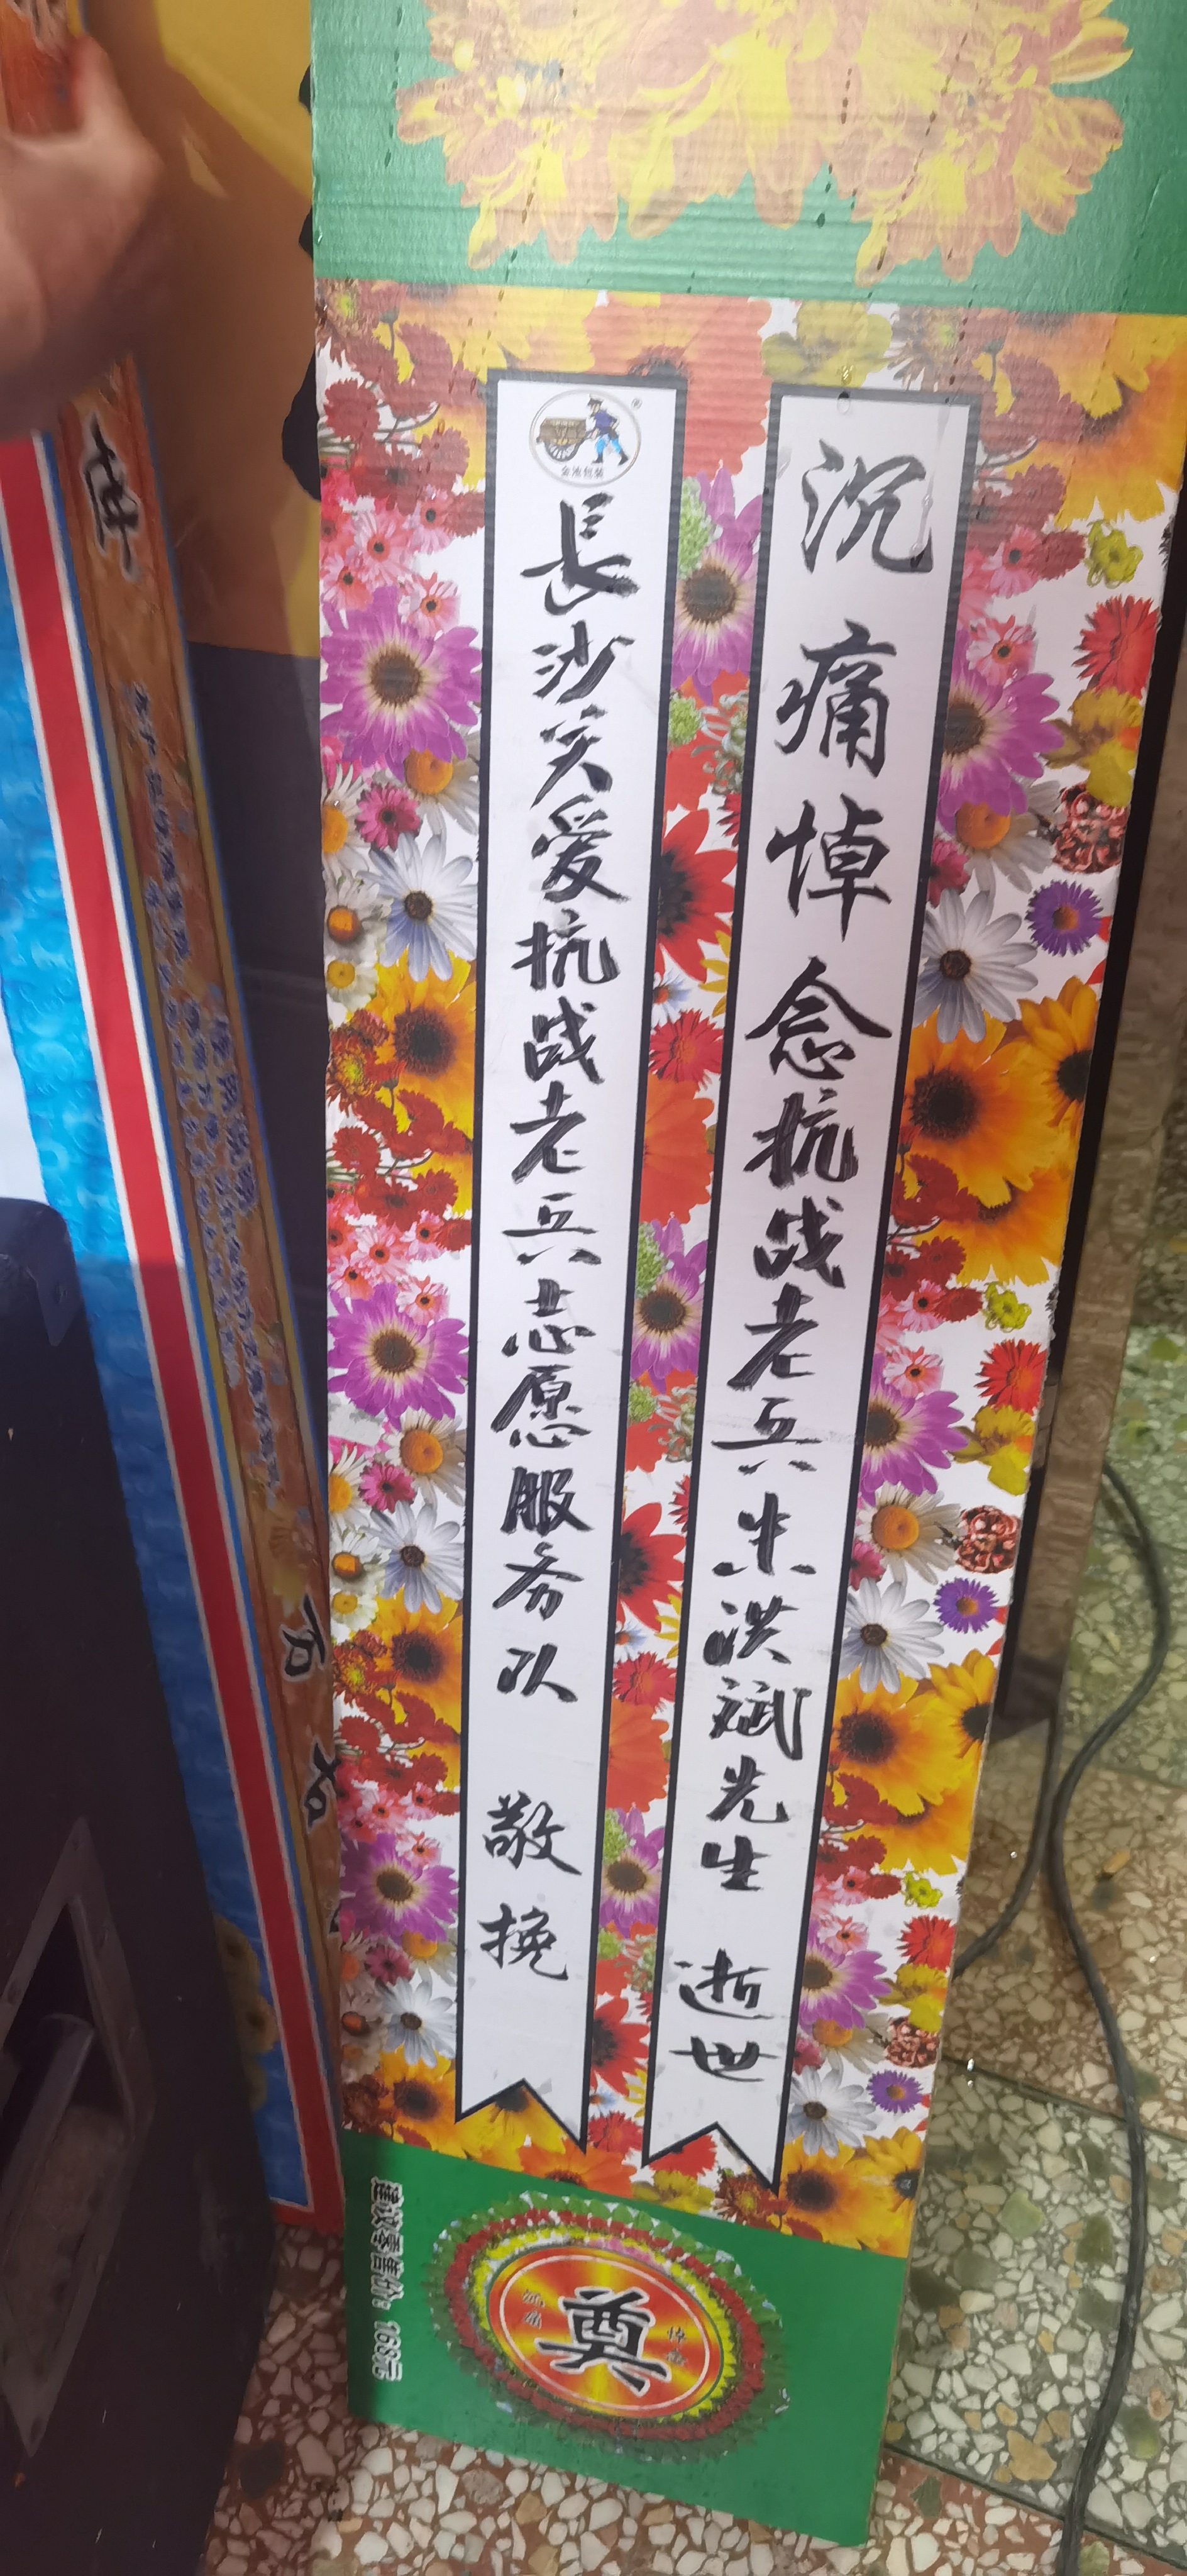 沉痛悼念抗战老兵朱洪斌先生 逝世
長沙关爱抗战老兵志愿服务队 敬挽
金池包装
奠
建议零售价：168元
万